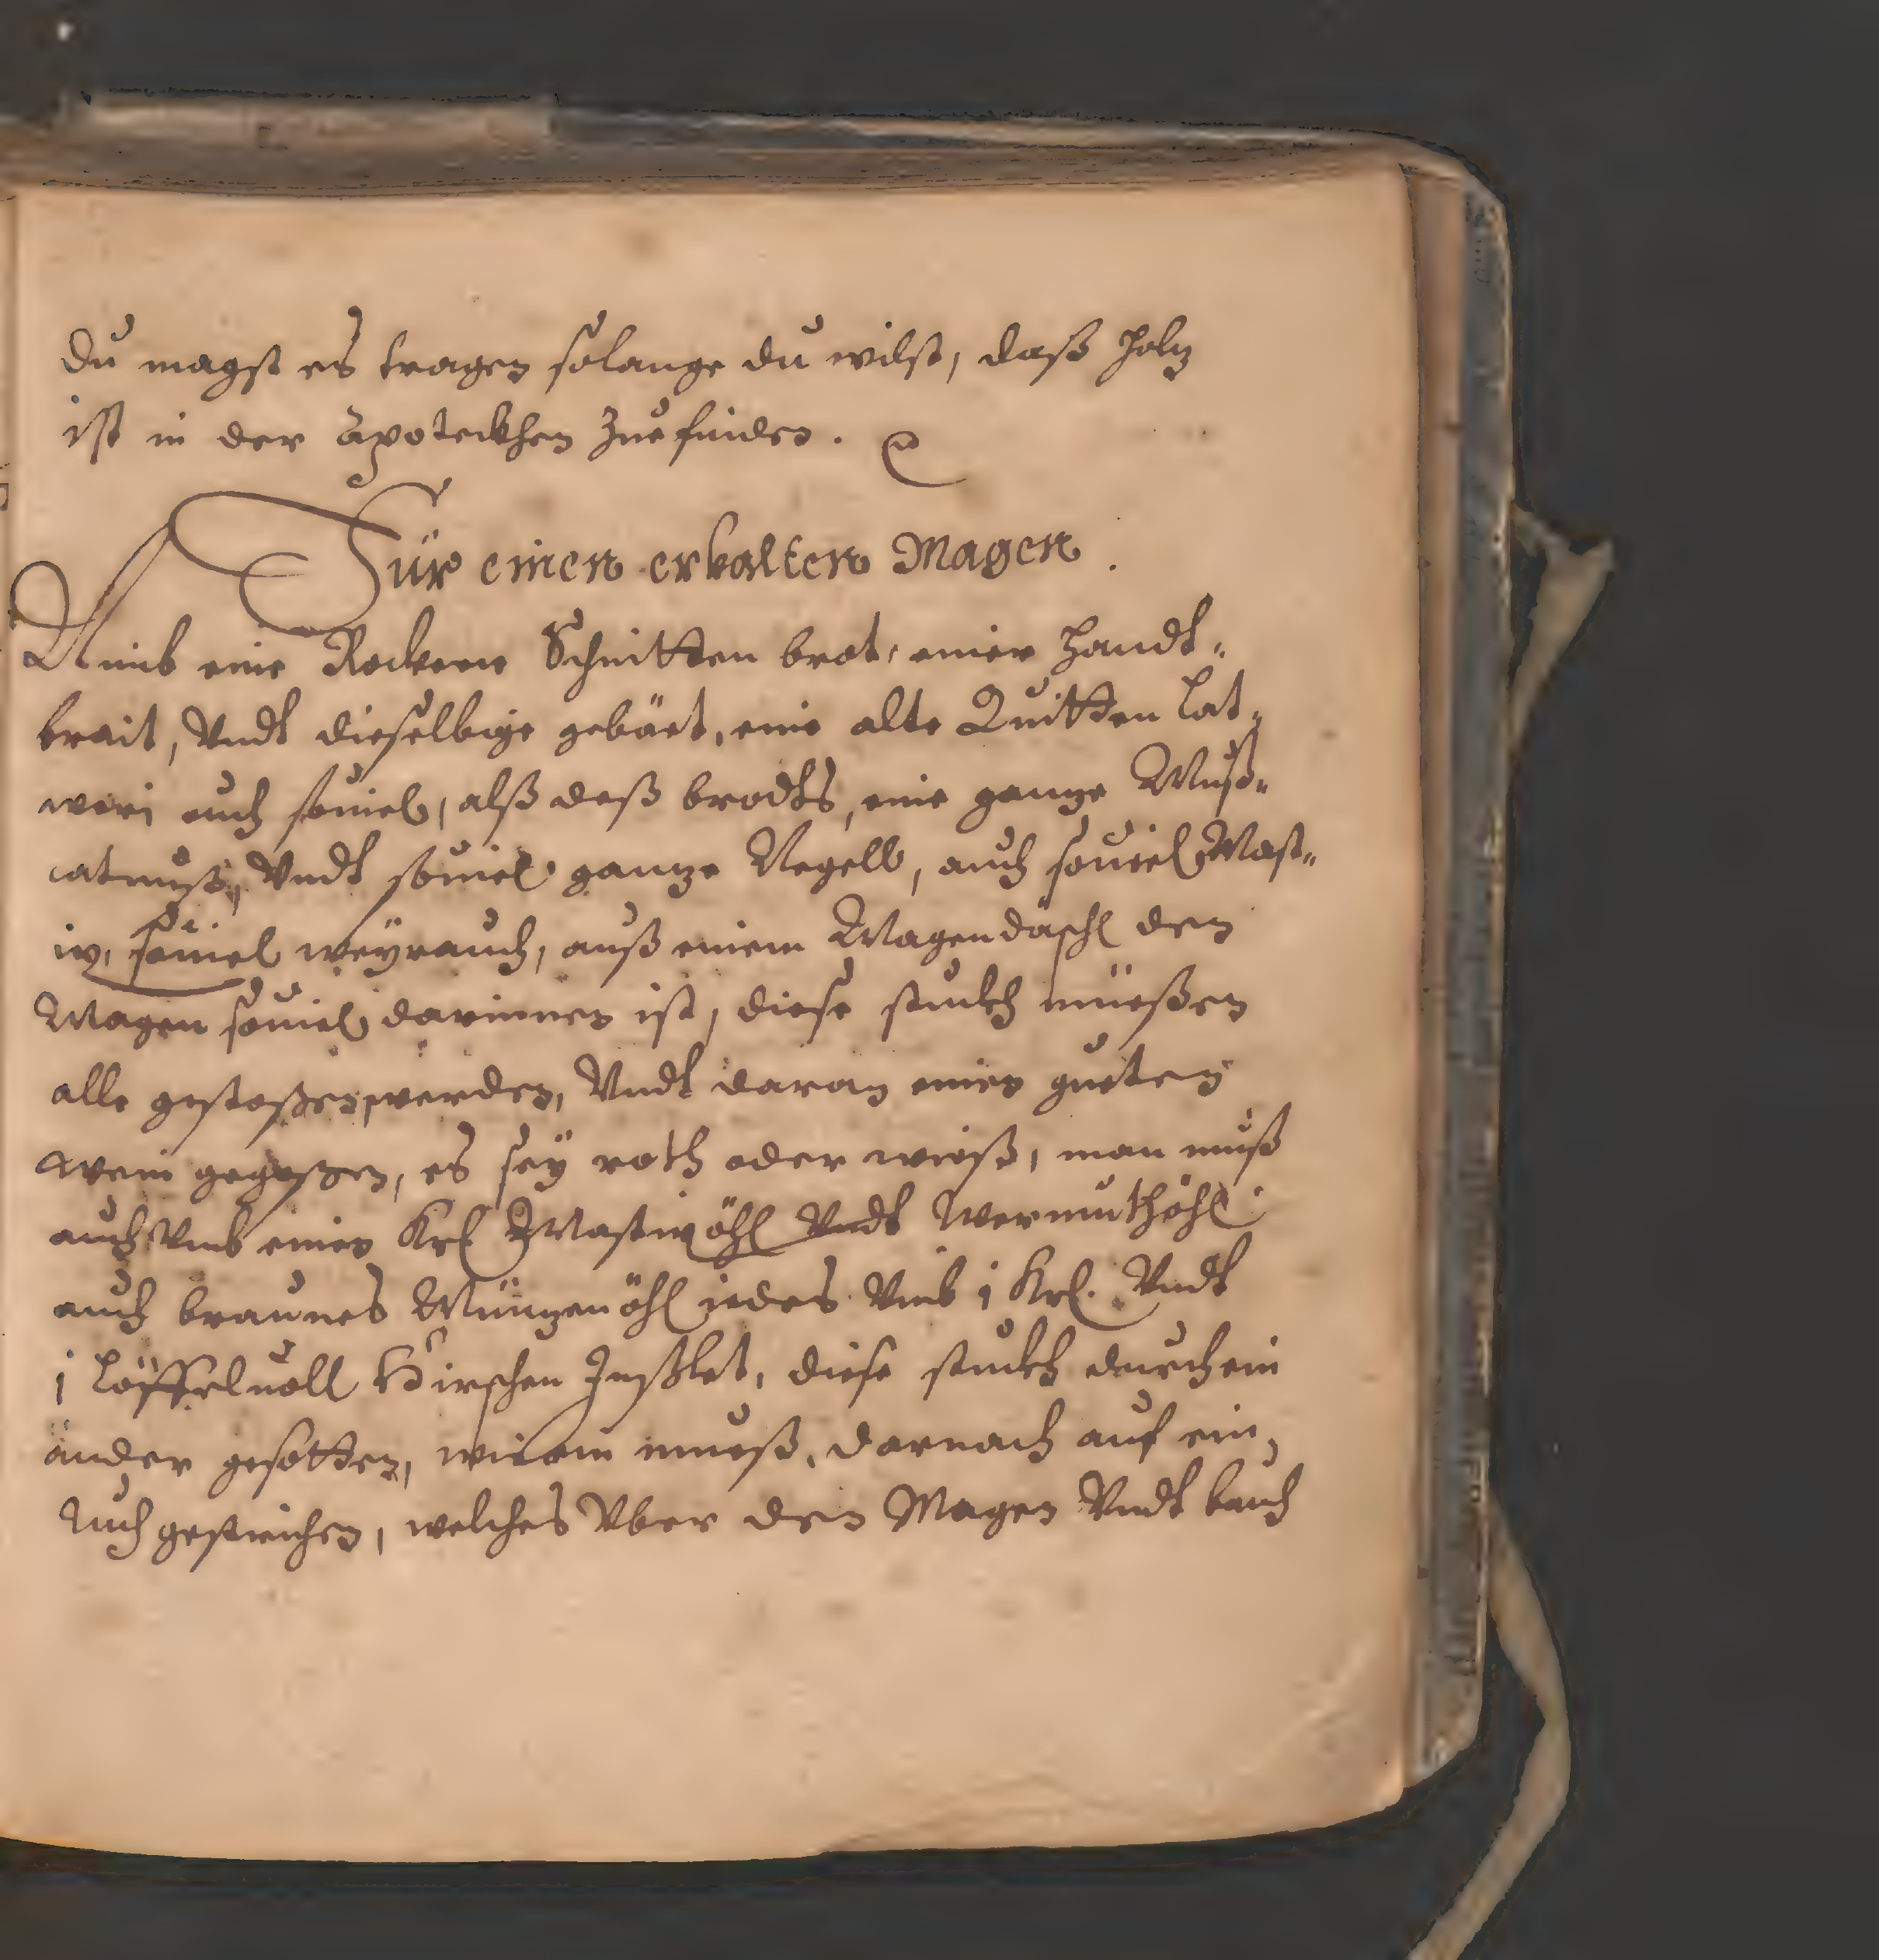 Du magst es tragen solange du wilst, daß holz
ist in der apoteckhen zue finden.
Für einen erkalten Magen.
Nimb eine Rockene Schnitten brot, einer handt„
brait, Vndt dieselbige gebäet, eine alte Quitten lat„
weri auch souiel, alß deß brodts, eine ganze Muß„
catnuß, Vndt souiel ganze Negell, auch souiel Mast„
ix, souiel weÿrauch, auß einem Magendäschl den
Magen souiel darinnen ist, diese stuckh müeßen
alle gestoßen werden, Vndt daran einen gueten
wein gegoßen, es seÿ roth oder weiß, man muß
auch Vmb einen Krl Mastixöhl Vndt Wermuthöhl
auch braunes Münzenöhl iedes Vmb j Krl. Vndt
j löffeluoll Hirschen Inßlet, diese stuckh durch ein
ander gesotten, wie ein mueß, darnach auf ein
tuch gestrichen, welches Vber den Magen Vndt bauch